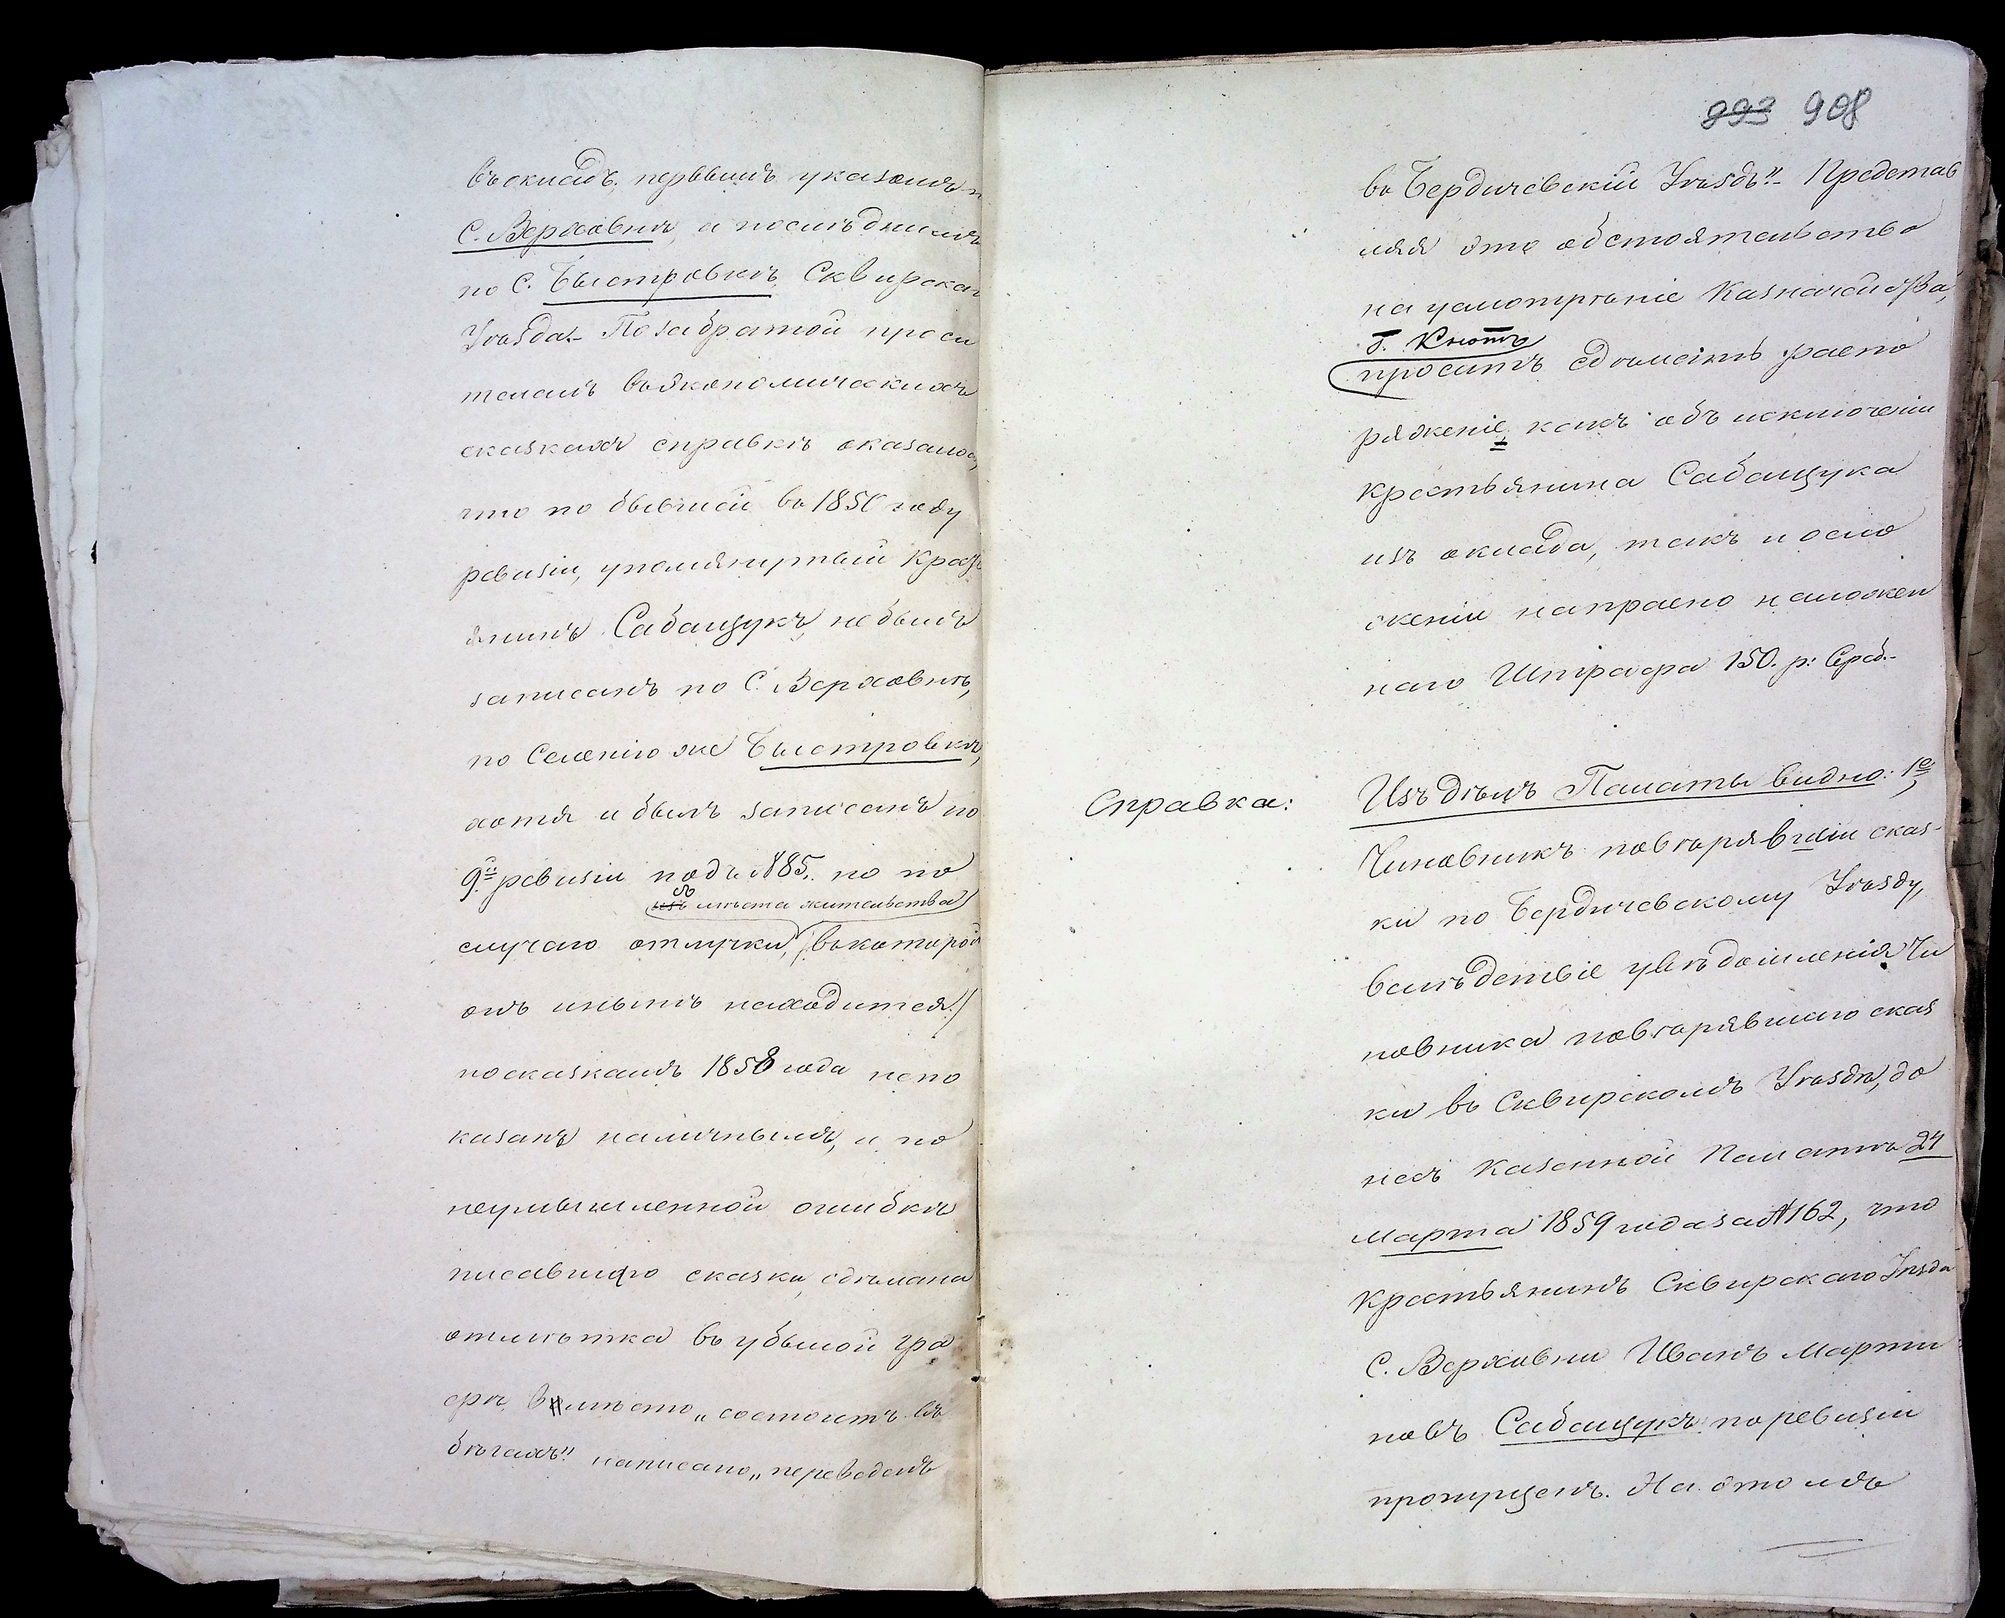 въ окладъ, первымъ указомъ п
С. Верховни, а последнимъ
по С. Быстровкѣ Сквирскаг
Уѣзда.- По забратой проси
телемъ въ экономическихъ
сказкахъ справкѣ оказалось,
что по бывшей въ 1850 году
ревизіи, упомянутый Кресть
янинъ Сабащукъ, не былъ
записанъ по С. Верховнѣ,
по Селенію же Быстровкѣ,
хотя и былъ записанъ по
9й ревизіи подъ № 85. но по
съ мѣста жительства
случаю отлучки, (въ которой
онъ и нынѣ находится)
по сказкамъ 1858 года не по
казанъ наличнымъ, и по
неумышленной ошибкѣ
писавшаго сказки, сдѣлана
отмѣтка въ убылой гра
фѣ вмѣсто „состоитъ въ
бѣгахъ" написано „переведенъ
993 908
въ Бердичевскій Уѣздъ"- Представ
ляя это обстоятельство
на усмотрѣніе Казначейства,
Г. Кнотъ
проситъ сдѣлать распо
ряженіе, какъ объ исключеніи
Крестьянина Сабащука
изъ оклада, такъ и о сло
женіи напрасно наложен
наго Штрафа 150. р: Сереб.-
Справка:
Изъ дѣлъ Палаты видно: 1е,
Чиновникъ повѣрявшій сказ-
ки по Бердичевскому Уѣзду,
вслѣдствіе увѣдомленія Чи
новника повѣрявшаго сказ
ки въ Сквирскомъ Уѣздѣ, до
несъ Казенной Палатѣ 24
марта 1859 года за № 162, что
Крестьянинъ Сквирскаго Уѣзда
С. Верховни Иванъ Марты
новъ Сабащукъ по ревизіи
пропущенъ. На этомъ